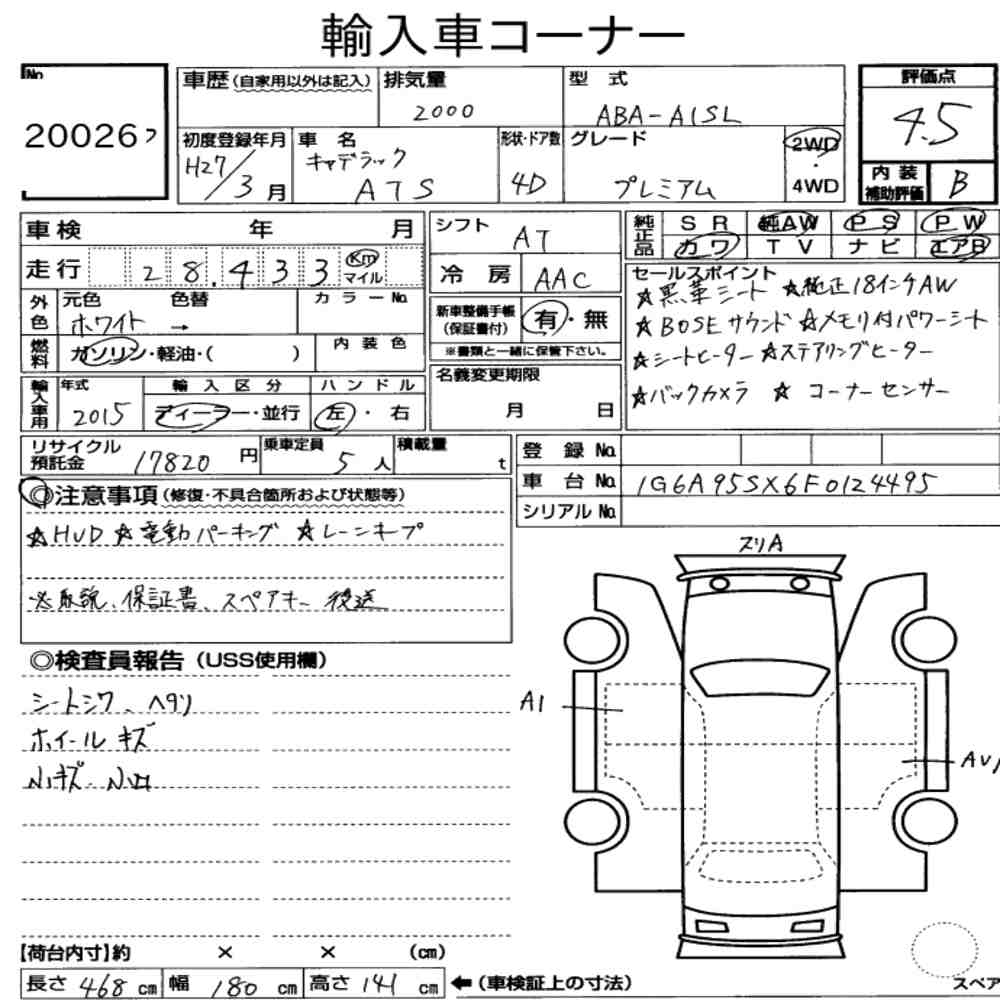 輸入車コーナー
No 20026フ
車歴(自家用以外は記入) 排気量 2000 型式 ABA-A1SL 評価点 4.5
初度登録年月 H27/3月 車名 キャデラック ATS 形状・ドア数 4D グレード プレミアム 2WD・4WD 内装補助評価 B
車検 年 月
走行 28,433 Km マイル
外色 元色 ホワイト 色替 → カラーNo.
燃料 ガソリン・軽油・( ) 内装色
輸入車用 年式 2015 輸入区分 ディーラー・並行 ハンドル 左・右
シフト AT
冷房 AAC
新車整備手帳(保証書付) 有・無
※書類と一緒に保管下さい。
名義変更期限
月 日
純正品 SR 純AW PS PW
カワ TV ナビ エアB
セールスポイント
☆黒革シート ☆純正18インチAW
☆BOSEサウンド ☆メモリ付パワーシート
☆シートヒーター ☆ステアリングヒーター
☆バックカメラ ☆コーナーセンサー
リサイクル預託金 17820円 乗車定員 5人 積載量 t
登録No.
車台No. 1G6A95SX6F0124495
シリアルNo.
◎注意事項(修復・不具合箇所および状態等)
☆HUD ☆電動パーキング ☆レーンキープ
※取説、保証書、スペアキー後送
◎検査員報告(USS使用欄)
シートシワ、ヘタリ
ホイールキズ
小キズ、小凹
スリA
A1
AU1
【荷台内寸】約 × × (cm)
長さ 468 cm 幅 180 cm 高さ 141 cm ←(車検証上の寸法)
スペア